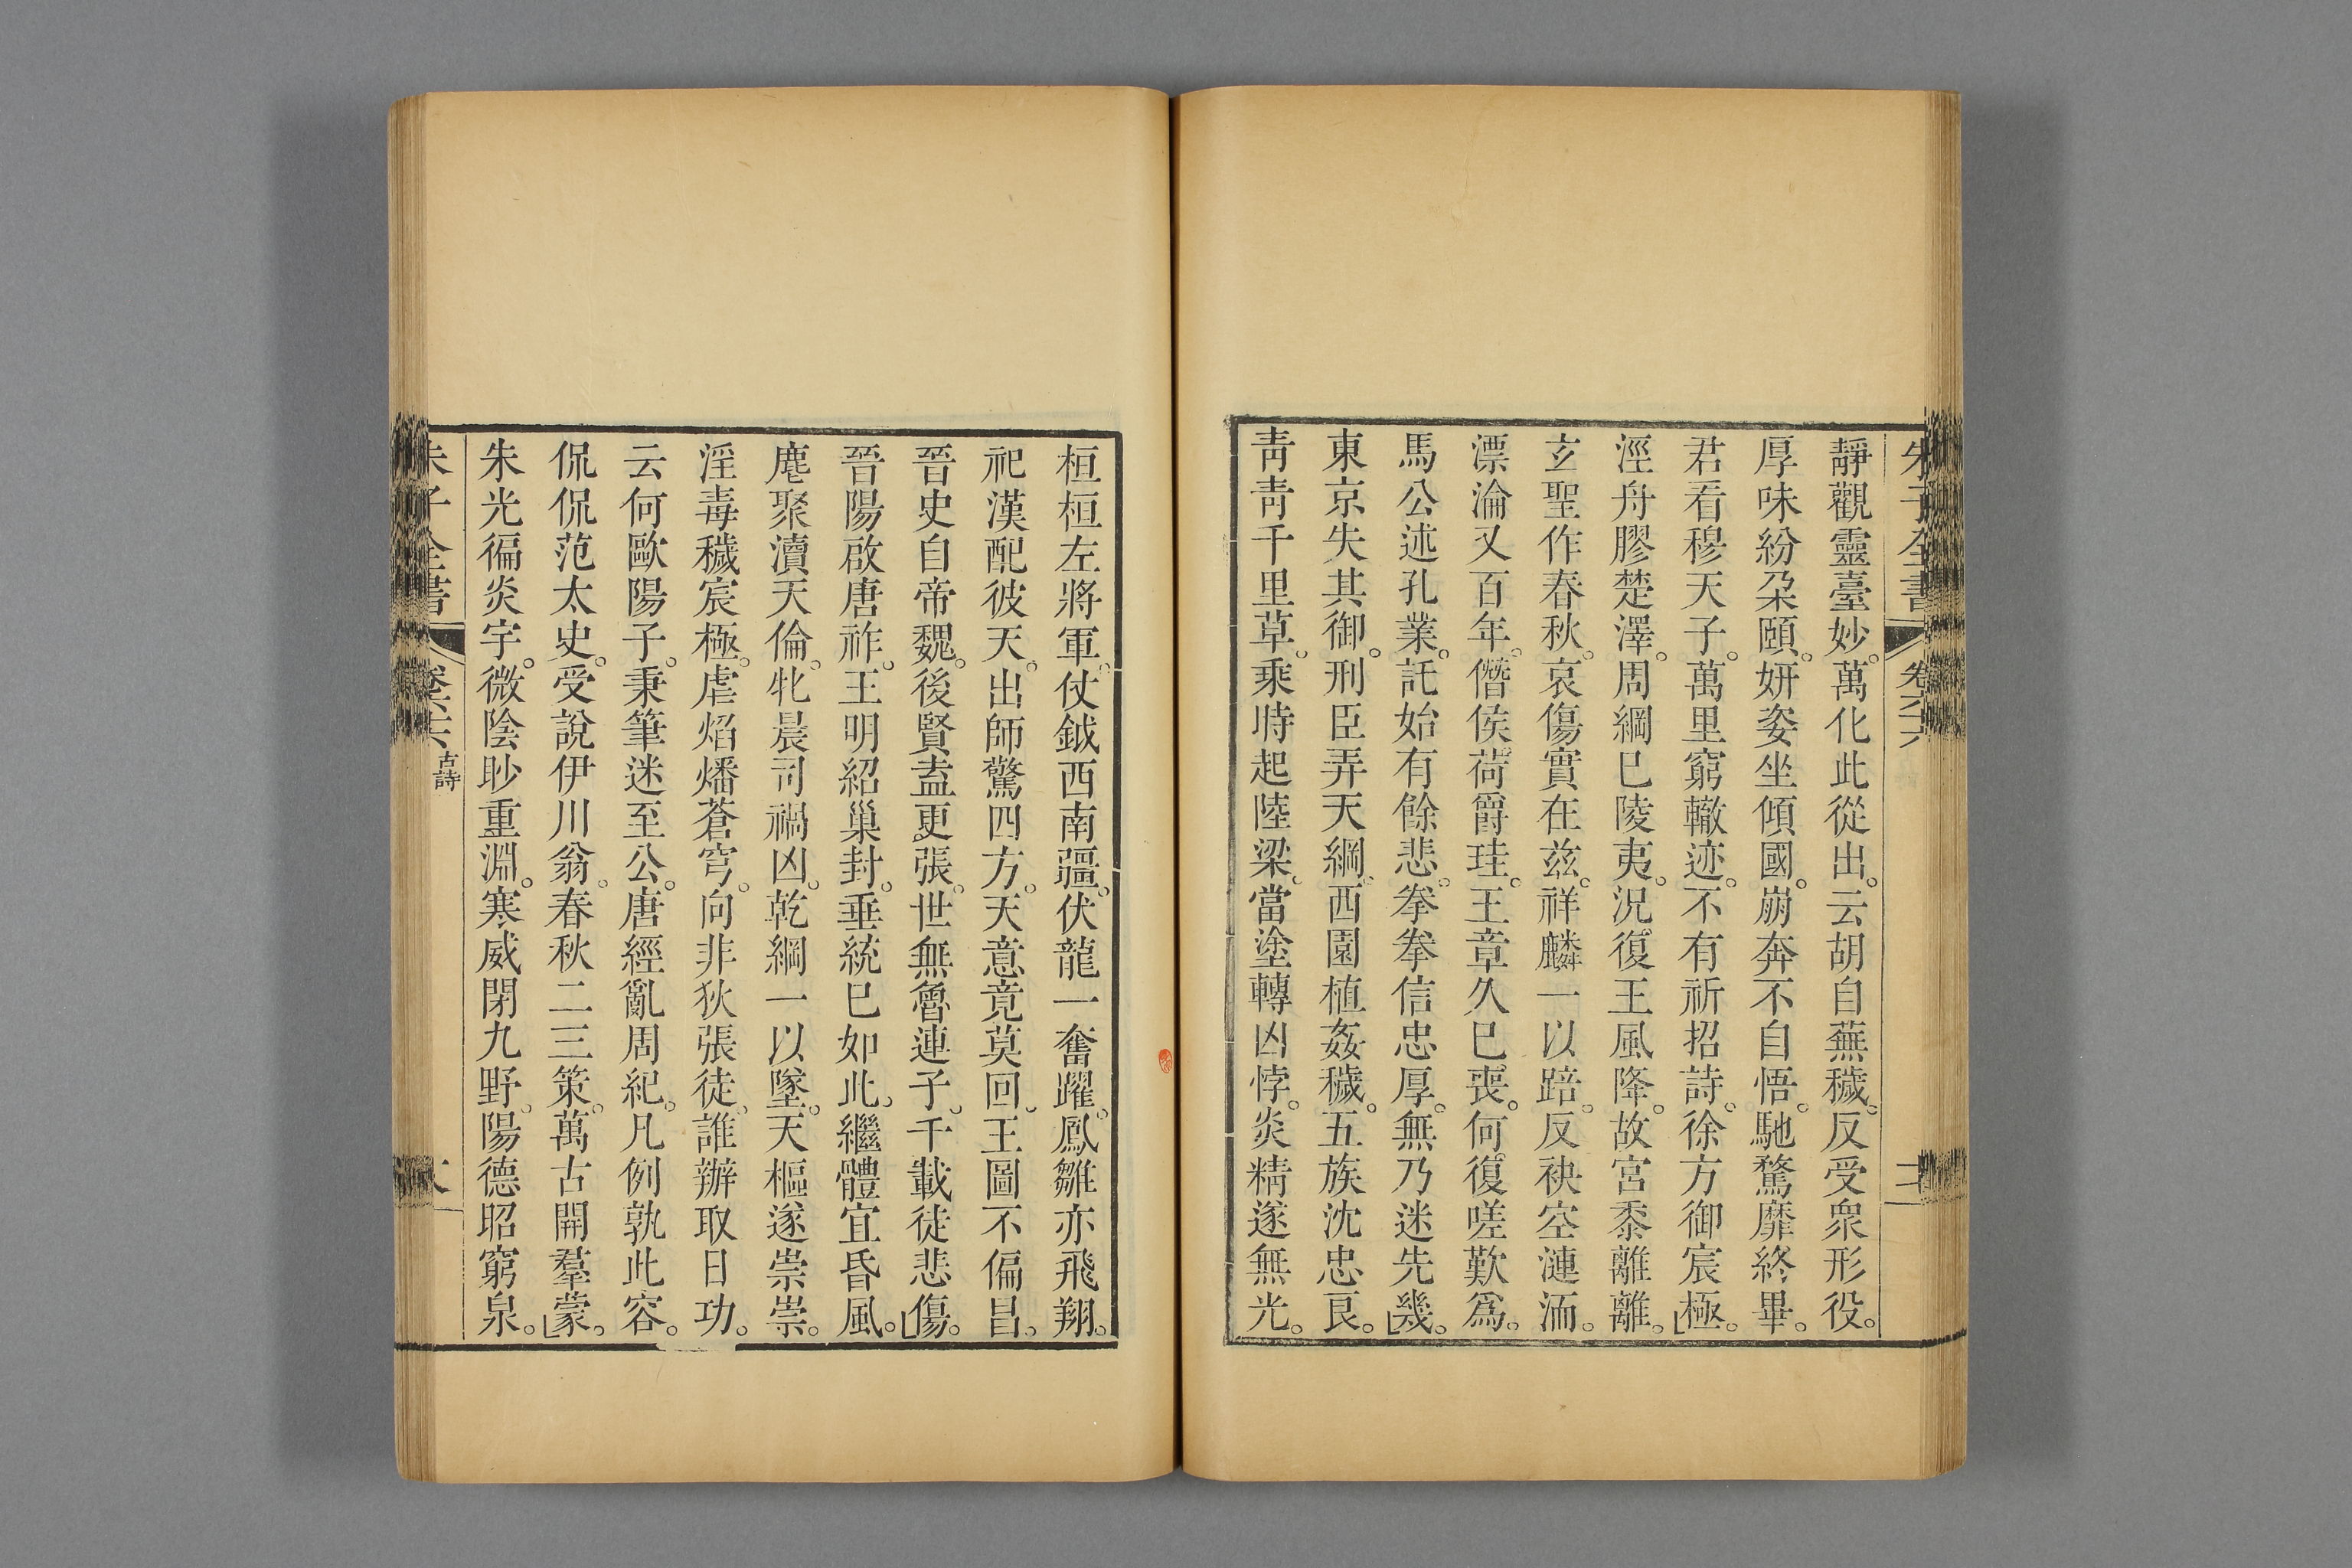 朱子全書 卷六十六 三
靜觀靈臺妙。萬化此從出。云胡自蕪穢。反受衆形役。
厚味紛朶頤。妍姿坐傾國。崩奔不自悟。馳騖靡終畢。
君看穆天子。萬里窮轍迹。不有祈招詩。徐方御宸極。
涇舟膠楚澤。周綱巳陵夷。況復王風降。故宮黍離離。
玄聖作春秋。哀傷實在茲。祥麟一以踣。反袂空漣洏。
漂淪又百年。僭侯荷爵珪。王章久巳喪。何復嗟歎爲。
馬公述孔業。託始有餘悲。拳拳信忠厚。無乃迷先幾。
東京失其御。刑臣弄天綱。西園植姦穢。五族沈忠良。
靑靑千里草。乘時起陸梁。當塗轉凶悖。炎精遂無光。
桓桓左將軍。仗鉞西南疆。伏龍一奮躍。鳳雛亦飛翔。
祀漢配彼天。出師驚四方。天意竟莫回。王圖不偏昌。
晉史自帝魏。後賢盍更張。世無魯連子。千載徒悲傷。
晉陽啟唐祚。王明紹巢封。垂統巳如此。繼體宜昏風。
麀聚瀆天倫。牝晨司禍凶。乾綱一以墜。天樞遂崇崇。
淫毒穢宸極。虐焰燔蒼穹。向非狄張徒。誰辦取日功。
云何歐陽子。秉筆迷至公。唐經亂周紀。凡例孰此容。
侃侃范太史。受說伊川翁。春秋二三策。萬古開羣蒙。
朱光徧炎宇。微陰眇重淵。寒威閉九野。陽德昭窮泉。
朱子全書 卷六十六 古詩